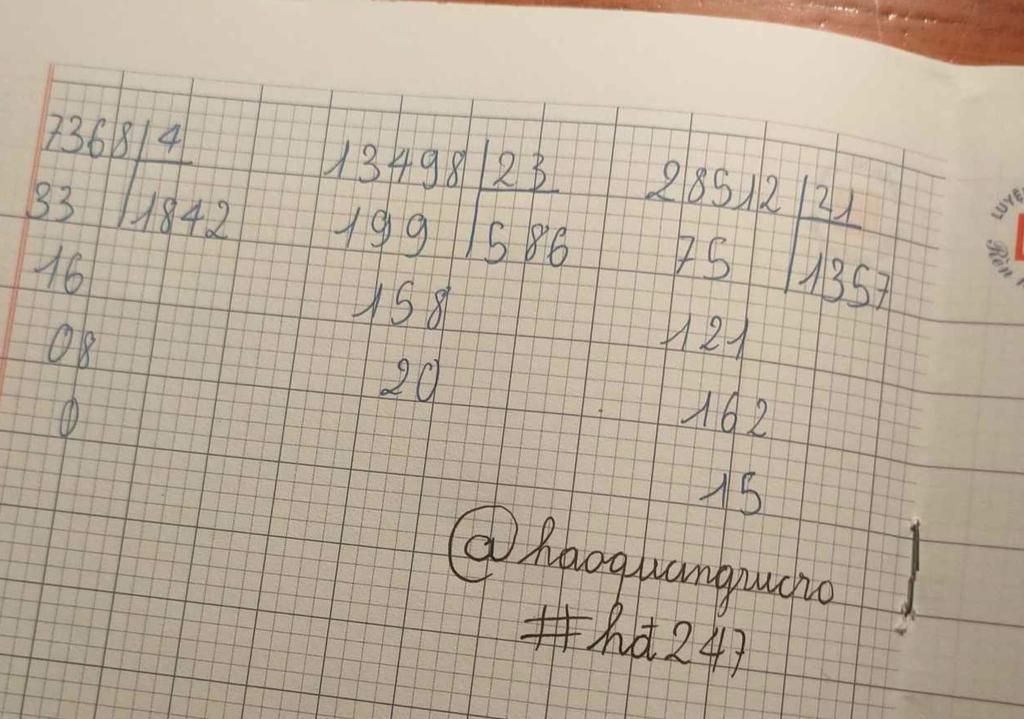 7368 4
33 1842
16
08
0
13498 23
199 586
158
20
28512 21
75 1357
121
162
15
@haoquangrucro
#hđ247
LUYỆ